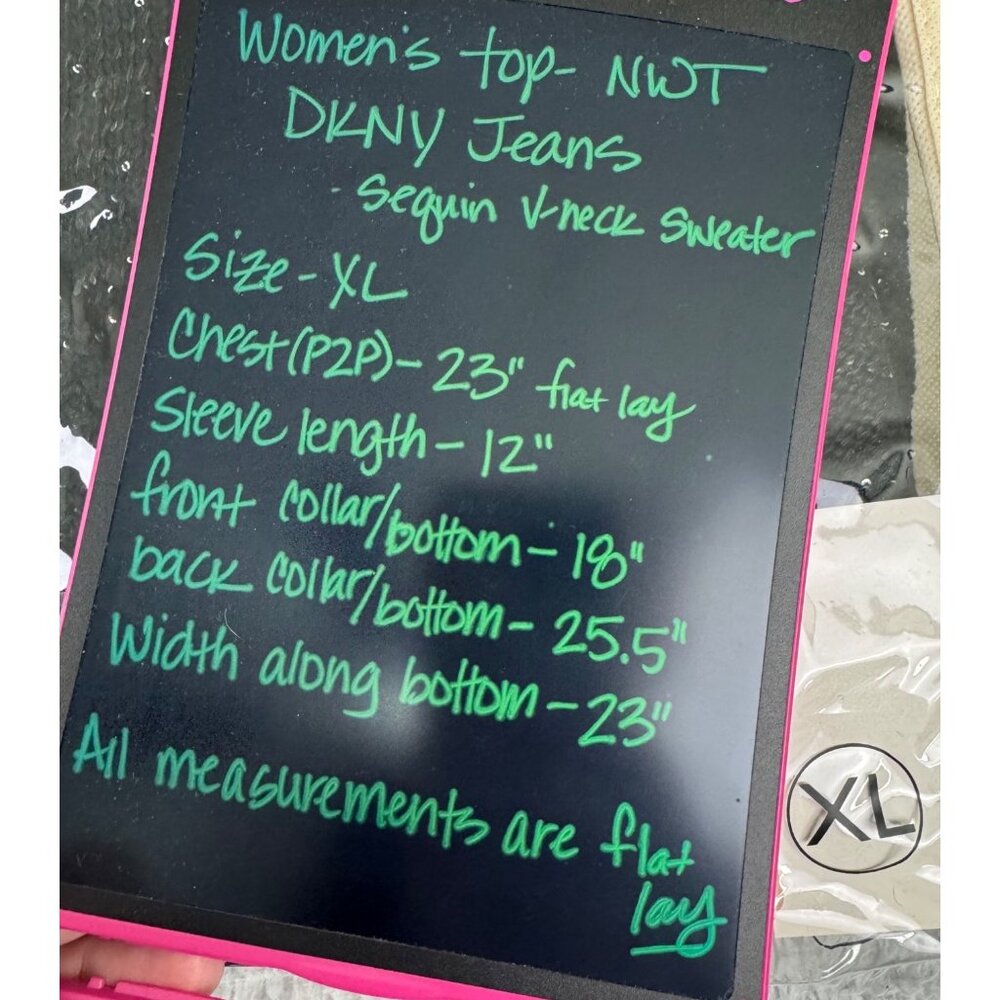 Women's top- NWT
DKNY Jeans
- Sequin V-neck Sweater
Size - XL
Chest (P2P) - 23" flat lay
Sleeve length - 12"
front collar/bottom - 18"
back collar/bottom - 25.5"
Width along bottom - 23"
All measurements are flat
lay
XL